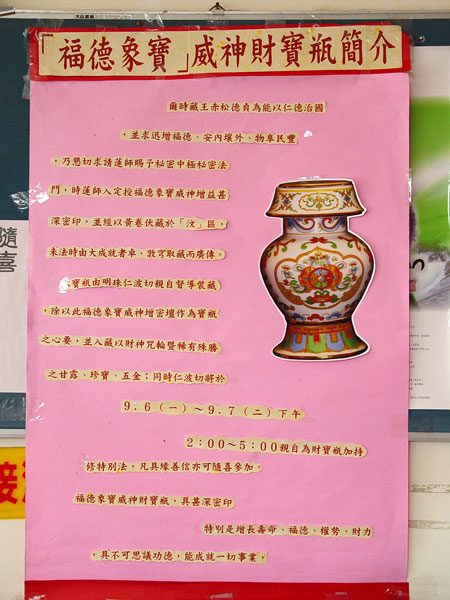 「福德象寶」威神財寶瓶簡介
爾時藏王赤松德貞為能以仁德治國
，並求迅增福德、安內壤外、物阜民豐
，乃懇切求請蓮師賜予秘密中極秘密法
門，時蓮師入定授福德象寶威神增益甚
深密印，並經以黃卷伏藏於「汶」區，
末法時由大成就者卓，敦穹取藏而廣傳。
寶瓶由明珠仁波切親自督導裝藏
，除以此福德象寶威神增密壇作為寶瓶
之心要，並入藏以財神咒輪暨稀有殊勝
之甘露、珍寶、五金；同時仁波切將於
9.6（一）～9.7（二）下午
2：00～5：00親自為財寶瓶加持
修特別法，凡具緣善信亦可隨喜參加。
福德象寶威神財寶瓶，具甚深密印
特別是增長壽命、福德、權勢、財力
，具不可思議功德，能成就一切事業，
隨喜